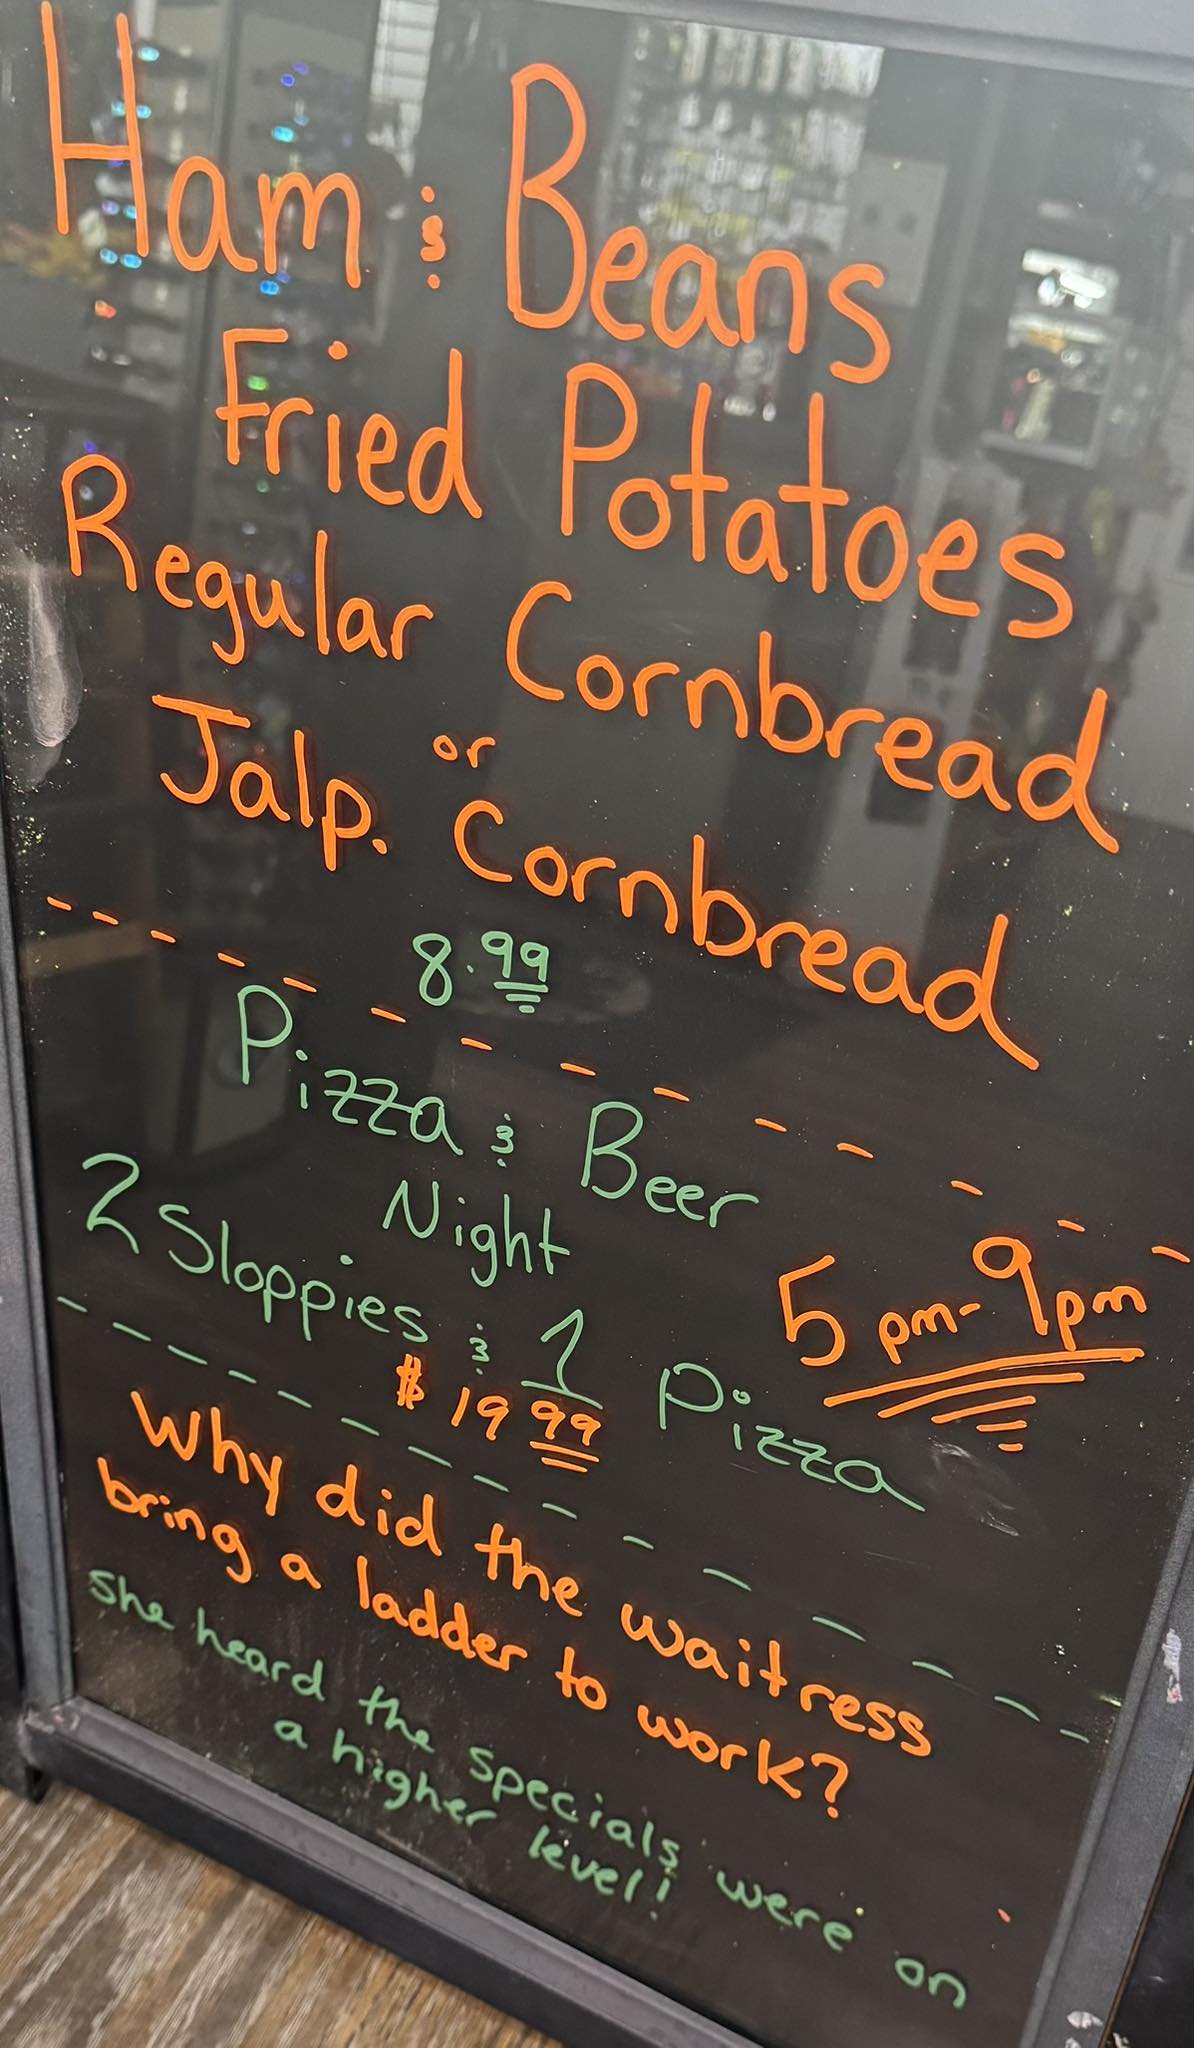 Ham & Beans
Fried Potatoes
Regular Cornbread
or
Jalp. Cornbread
8.99
Pizza & Beer
Night
5pm-9pm
2 Sloppies & 1 Pizza
$19 99
Why did the waitress
bring a ladder to work?
she heard the specials were on
a higher level!